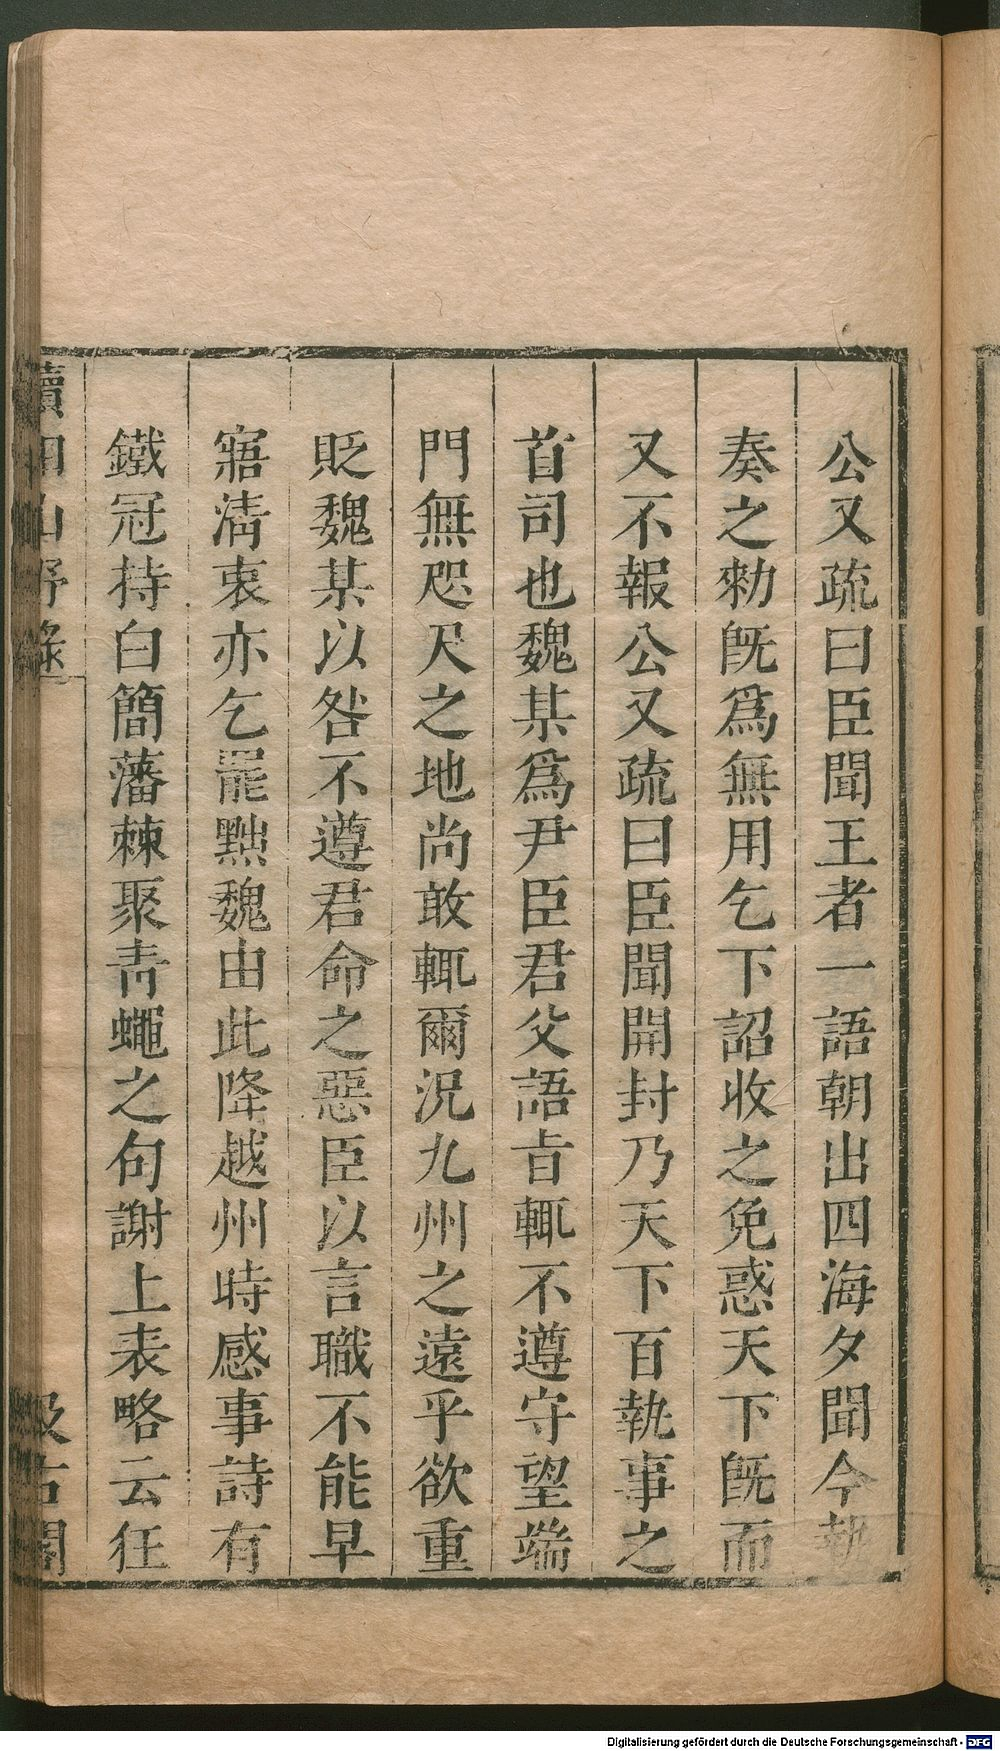 公又疏曰臣聞王者一語朝出四海夕聞今執
奏之勑旣爲無用乞下詔收之免惑天下旣而
又不報公又疏曰臣聞開封乃天下百執事之
首司也魏某爲尹臣君父語㫖輒不遵守望端
門無咫尺之地尚敢輒爾況九州之遠乎欲重
貶魏某以咎不遵君命之惡臣以言職不能早
寤淸衷亦乞罷黜魏由此降越州時感事詩有
鐵冠持白簡藩棘聚靑蠅之句謝上表略云狂
續湘山野錄
汲古閣
Digitalisierung gefördert durch die Deutsche Forschungsgemeinschaft - DFG